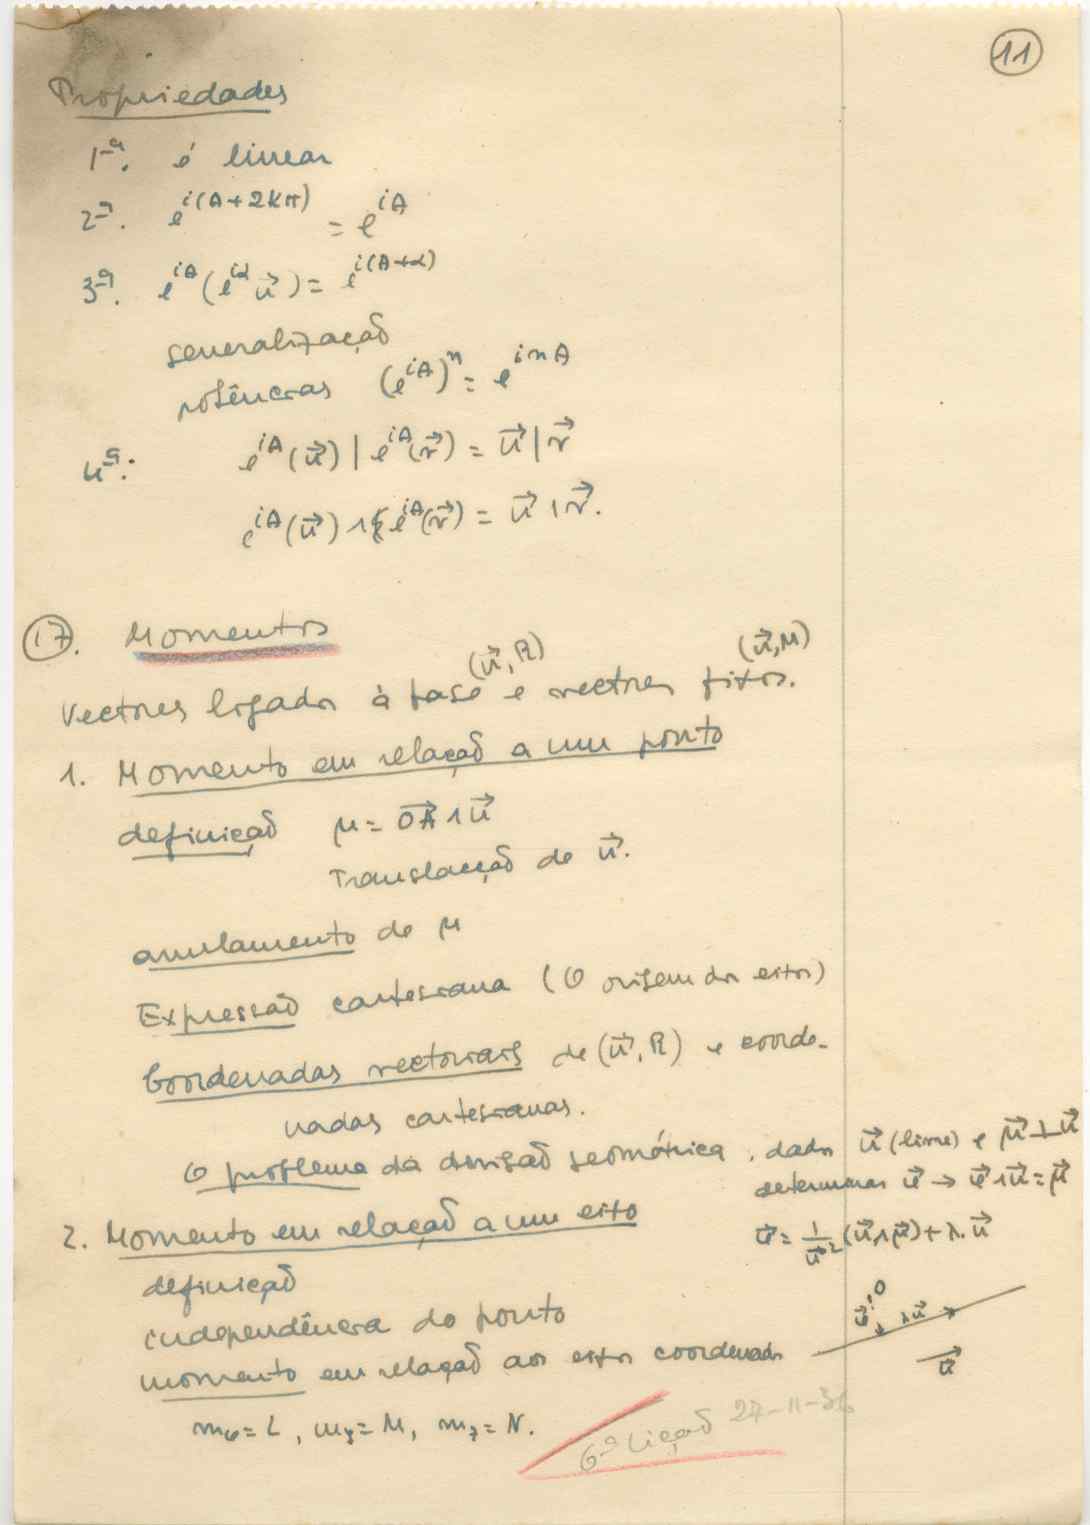 11
Propriedades
1ª. é linear
2ª. e^{i(A+2Kπ)} = e^{iA}
3ª. e^{iA}(e^{iα} u⃗) = e^{i(A+α)}
generalização
potências (e^{iA})^n = e^{inA}
4ª. e^{iA}(u⃗) | e^{iA}(v⃗) = u⃗ | v⃗
e^{iA}(u⃗) ∧ e^{iA}(v⃗) = u⃗ ∧ v⃗.
17. Momentos
(u⃗, R) (u⃗, M)
Vectores ligados à base e vectores fixos.
1. Momento em relação a um ponto
definição μ = OA⃗ ∧ u⃗
Translacção de u⃗.
anulamento de μ
Expressão cartesiana (O origem dos eixos)
Coordenadas vectoriais de (u⃗, R) e coorde-
nadas cartesianas.
O problema da divisão geométrica, dados u⃗ (livre) e μ⃗ ⊥ u⃗
determinar v⃗ → v⃗ ∧ u⃗ = μ⃗
v⃗ = 1/u⃗² (u⃗ ∧ μ⃗) + λ. u⃗
2. Momento em relação a um eixo
definição
independência do ponto
momento em relação aos eixos coordenados
O
v⃗
λu⃗
u⃗
m_x = L, m_y = M, m_z = N.
6ª Lição 27-11-36